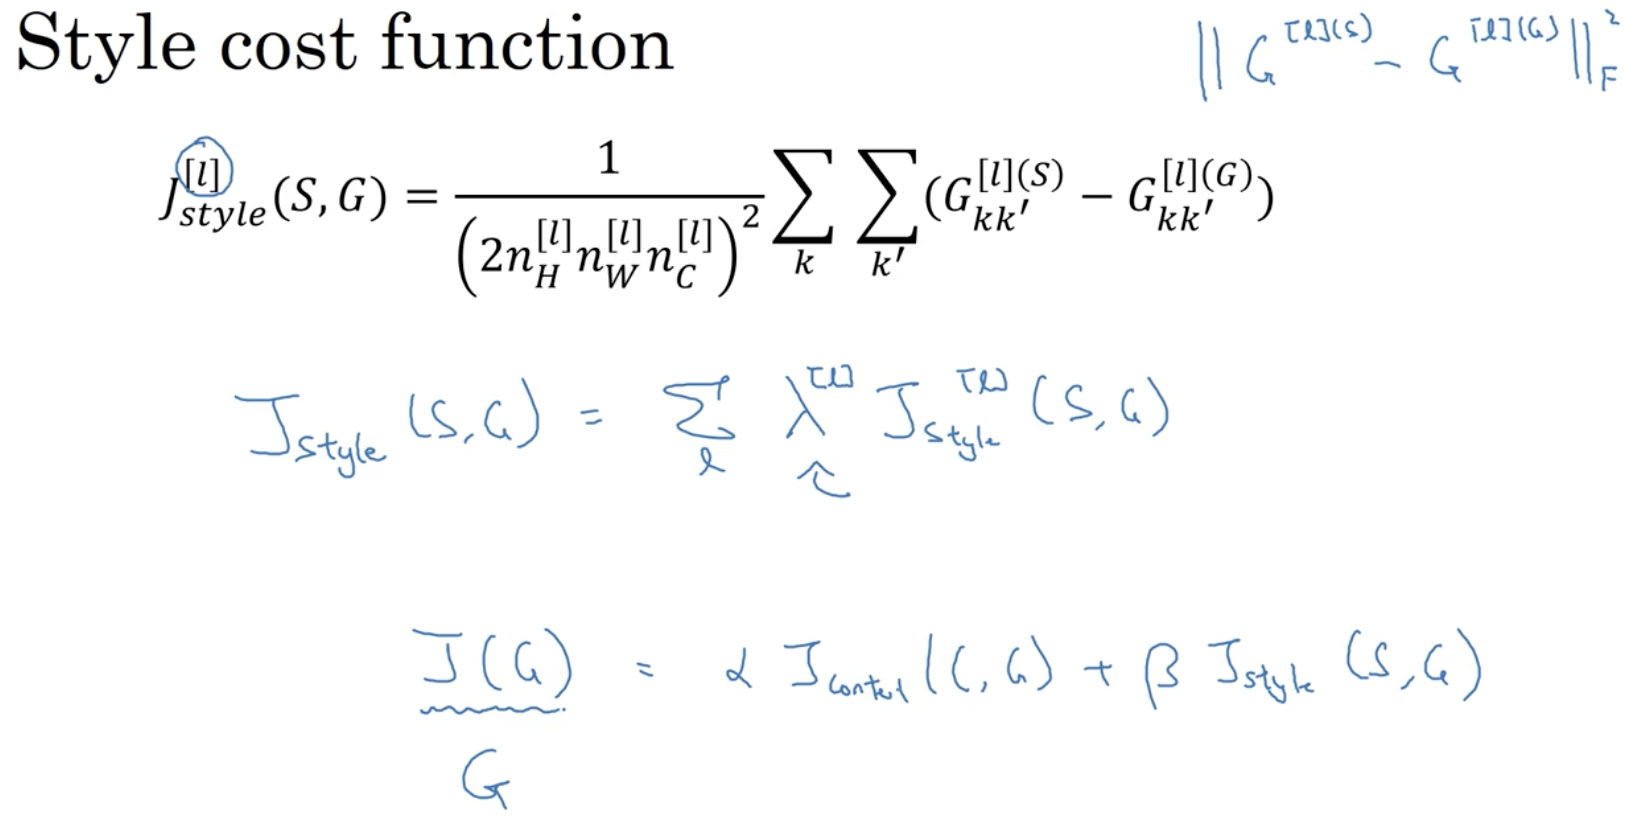 Style cost function
‖ G^{[l](S)} − G^{[l](G)} ‖_F^2
J_{style}^{[l]}(S, G) = \frac{1}{(2n_H^{[l]} n_W^{[l]} n_C^{[l]})^2} ∑_k ∑_{k'} (G_{kk'}^{[l](S)} − G_{kk'}^{[l](G)})
J_{style}(S, G) = ∑_l λ^{[l]} J_{style}^{[l]}(S, G)
J(G) = α J_{content}(C, G) + β J_{style}(S, G)
G